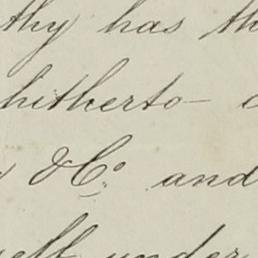 thy has th
hitherto –
& Co. and
self under